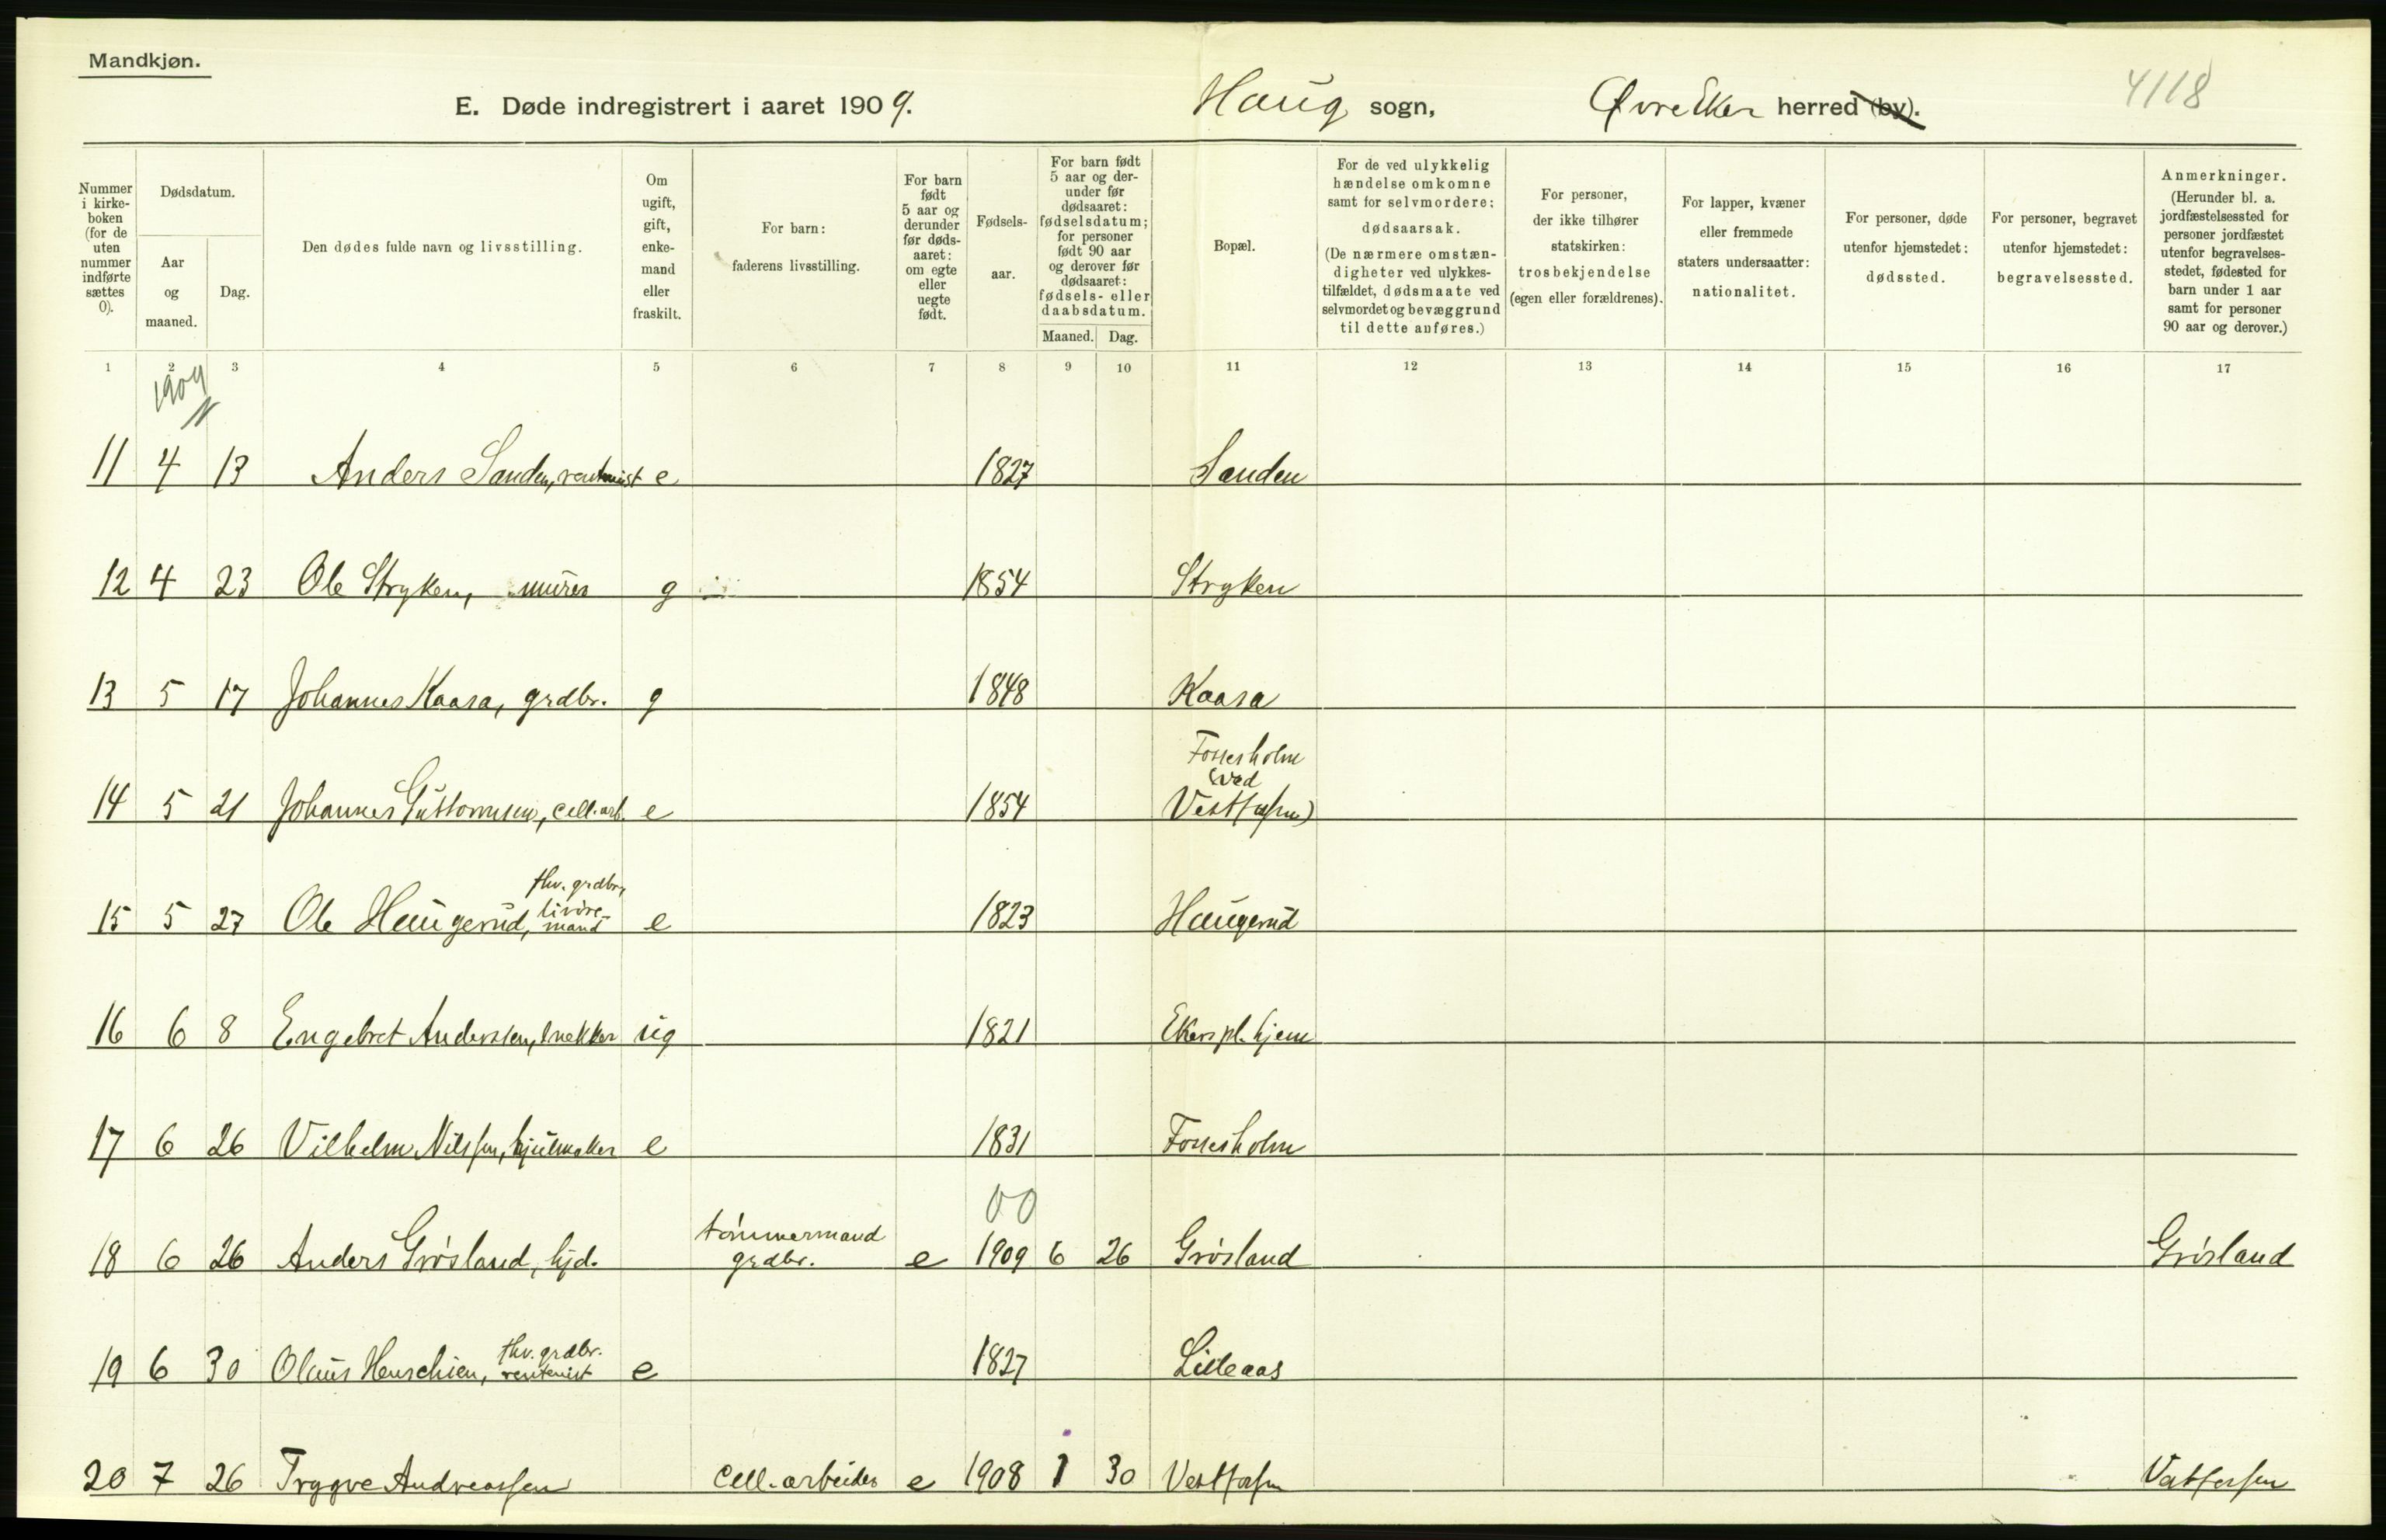 Mandkjøn.
E. Døde indregistrert i aaret 1909. Haug sogn, Øvre Eker herred (by). 4118
Nummer i kirke-boken (for de uten nummer indførte sættes 0).
Dødsdatum.
Aar og maaned.
Dag.
Den dødes fulde navn og livsstilling.
Om ugift, gift, enke-mand eller fraskilt.
For barn: faderens livsstilling.
For barn født 5 aar og derunder før døds-aaret: om egte eller uegte født.
Fødsels-aar.
For barn født 5 aar og der-under før dødsaaret: fødselsdatum; for personer født 90 aar og derover før dødsaaret: fødsels- eller daabsdatum.
Maaned. Dag.
Bopæl.
For de ved ulykkelig hændelse omkomne samt for selvmordere: dødsaarsak. (De nærmere omstæn-digheter ved ulykkes-tilfældet, dødsmaate ved selvmordet og bevæggrund til dette anføres.)
For personer, der ikke tilhører statskirken: trosbekjendelse (egen eller forældrenes).
For lapper, kvæner eller fremmede staters undersaatter: nationalitet.
For personer, døde utenfor hjemstedet: dødssted.
For personer, begravet utenfor hjemstedet: begravelsessted.
Anmerkninger. (Herunder bl. a. jordfæstelsessted for personer jordfæstet utenfor begravelses-stedet, fødested for barn under 1 aar samt for personer 90 aar og derover.)
1 2 3 4 5 6 7 8 9 10 11 12 13 14 15 16 17
1909
11 4 13 Anders Sanden, rentenist e 1827 Sanden
12 4 23 Ole Stryken, murer g 1854 Stryken
13 5 17 Johannes Kaasa, grdbr. g 1848 Kaasa
14 5 21 Johannes Guttormsen, cell.arb. e 1854 Fossesholm (ved Vestfossen)
15 5 27 Ole Haugerud, fhv. grdbr, livøre-mand e 1823 Haugerud
16 6 8 Engebret Anderssen, snekker ug 1821 Ekers pl.hjem
17 6 26 Vilhelm Nilssen, hjulmaker e 1831 Fossesholm
00
18 6 26 Anders Grøsland, hjd. tømmermand grdbr. e 1909 6 26 Grøsland Grøsland
19 6 30 Olaus Henschien, fhv. grdbr. rentenist e 1827 Lilleaas
20 7 26 Trygve Andreassen cell.arbeider e 1908 1 30 Vestfossen Vestfossen